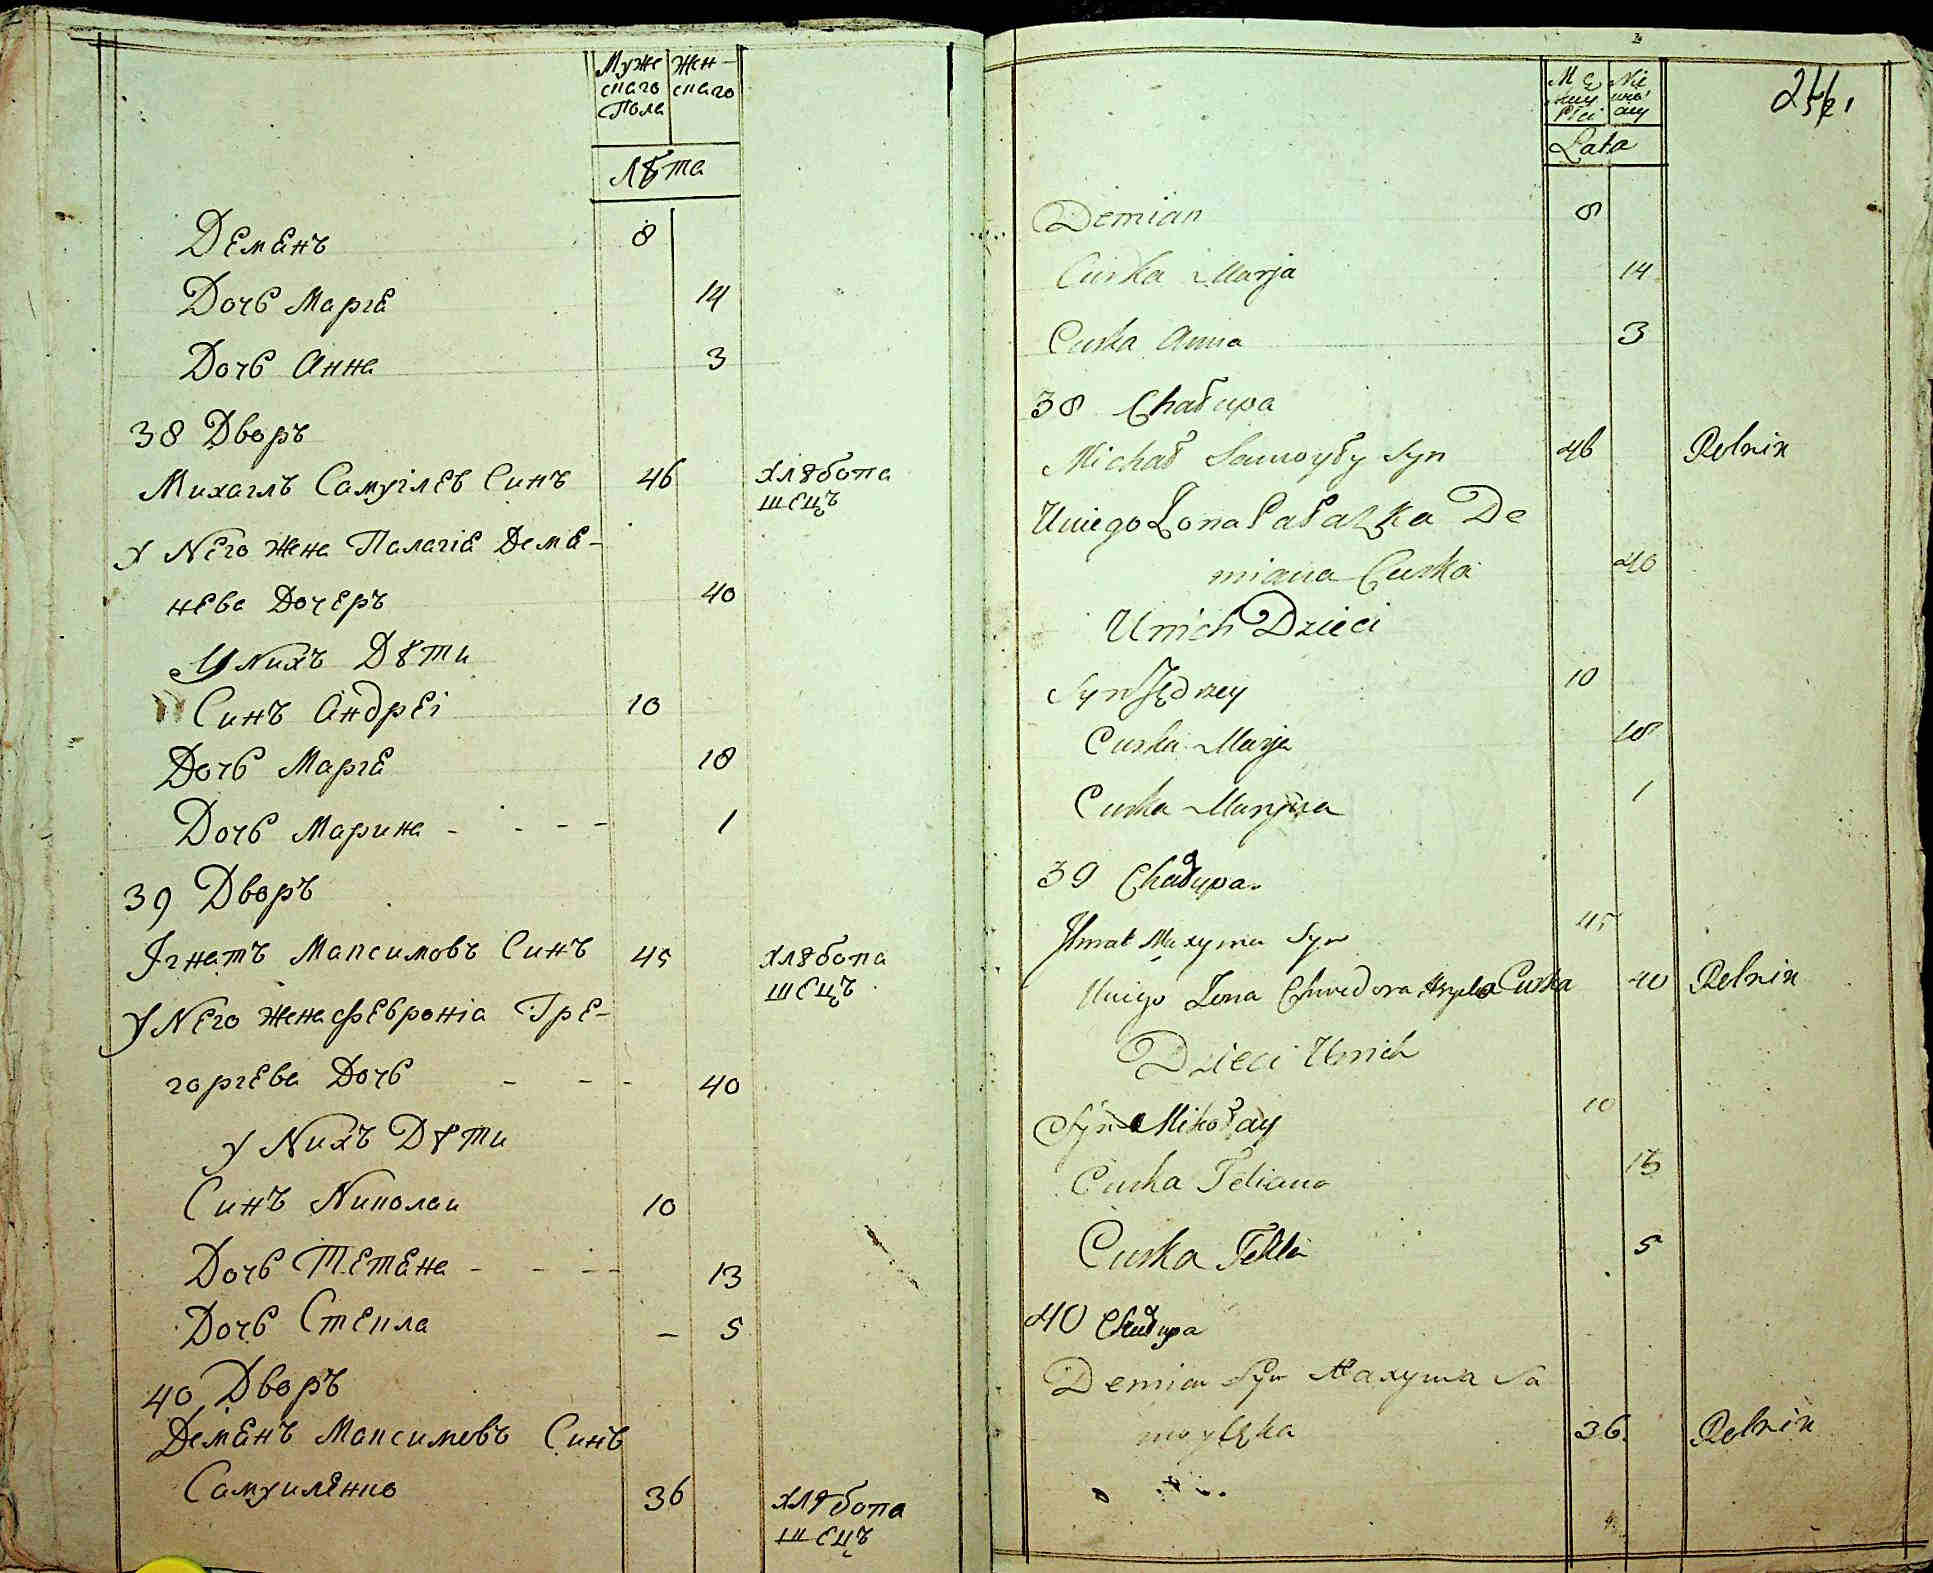 Муже Жен-
скаго скаго
Пола
Лѣта
Демянъ 8
Дочь Марія 14
Дочь Анна 3
38 Дворъ
Михаглъ Самуілевъ Синъ 46 хлѣбопа
шецъ
У Него жена Палагія Демя-
нева Дочеръ 40
У Нихъ Дѣти
Синъ Андреі 10
Дочь Марія 18
Дочь Марина - - - - 1
39 Дворъ
Ігнатъ Максимовъ Синъ 45 хлѣбопа
шецъ
У Него жена Февронія Гре-
горіева Дочь - - - 40
У Нихъ Дѣти
Синъ Николаи 10
Дочь Тетяна - - - - 13
Дочь Стекла - 5
40 Дворъ
Демянъ Максимовъ Синъ
Самуиленко 36 хлѣбопа
шецъ
Lata
Demian 8
Curka Marja 14
Curka Anna 3
38 Chałupa
Michał Samoyły Syn 46 Rolnik
Uniego Żona Pałazka De
miana Curka 40
Unich Dzieci
Syn Jędrzey 10
Curka Marja 18
Curka Maryna 1
39 Chałupa
Ihnat Maxyma Syn 45
Uniego Żona Chwedora Curka 40 Rolnik
Dzieci Unich
Syn Mikołay 10
Curka Tetiana 13
Curka Tekla 5
40 Chałupa
Demian Syn Maxyma Sa
moyłęka 36 Rolnik